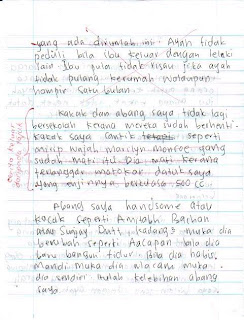 yang ada dirumah ini. Ayah tidak
peduli bila ibu keluar dengan lelaki
lain. Ibu pula tidak kisah jika ayah
tidak pulang kerumah walaupun
hampir satu bulan.
Kakak dan abang saya tidak lagi
bersekolah kerana mereka sudah berhenti.
kakak saya cantik seperti
mirip wajah marilyn monroe yang
sudah mati itu. Dia mati kerana
terlanggar motokar datuk saya
yang enjinnya berkuasa 500 cc.
Abang saya handsome atau
kacak seperti Amitabh Bachan
Sunjay Dutt, kadang muka dia
berubah seperti Hacapan bila dia
baru bangun tidur. Bila dia habis
mandi muka dia macam muka
dia sendiri. Itulah kelebihan abang
saya.